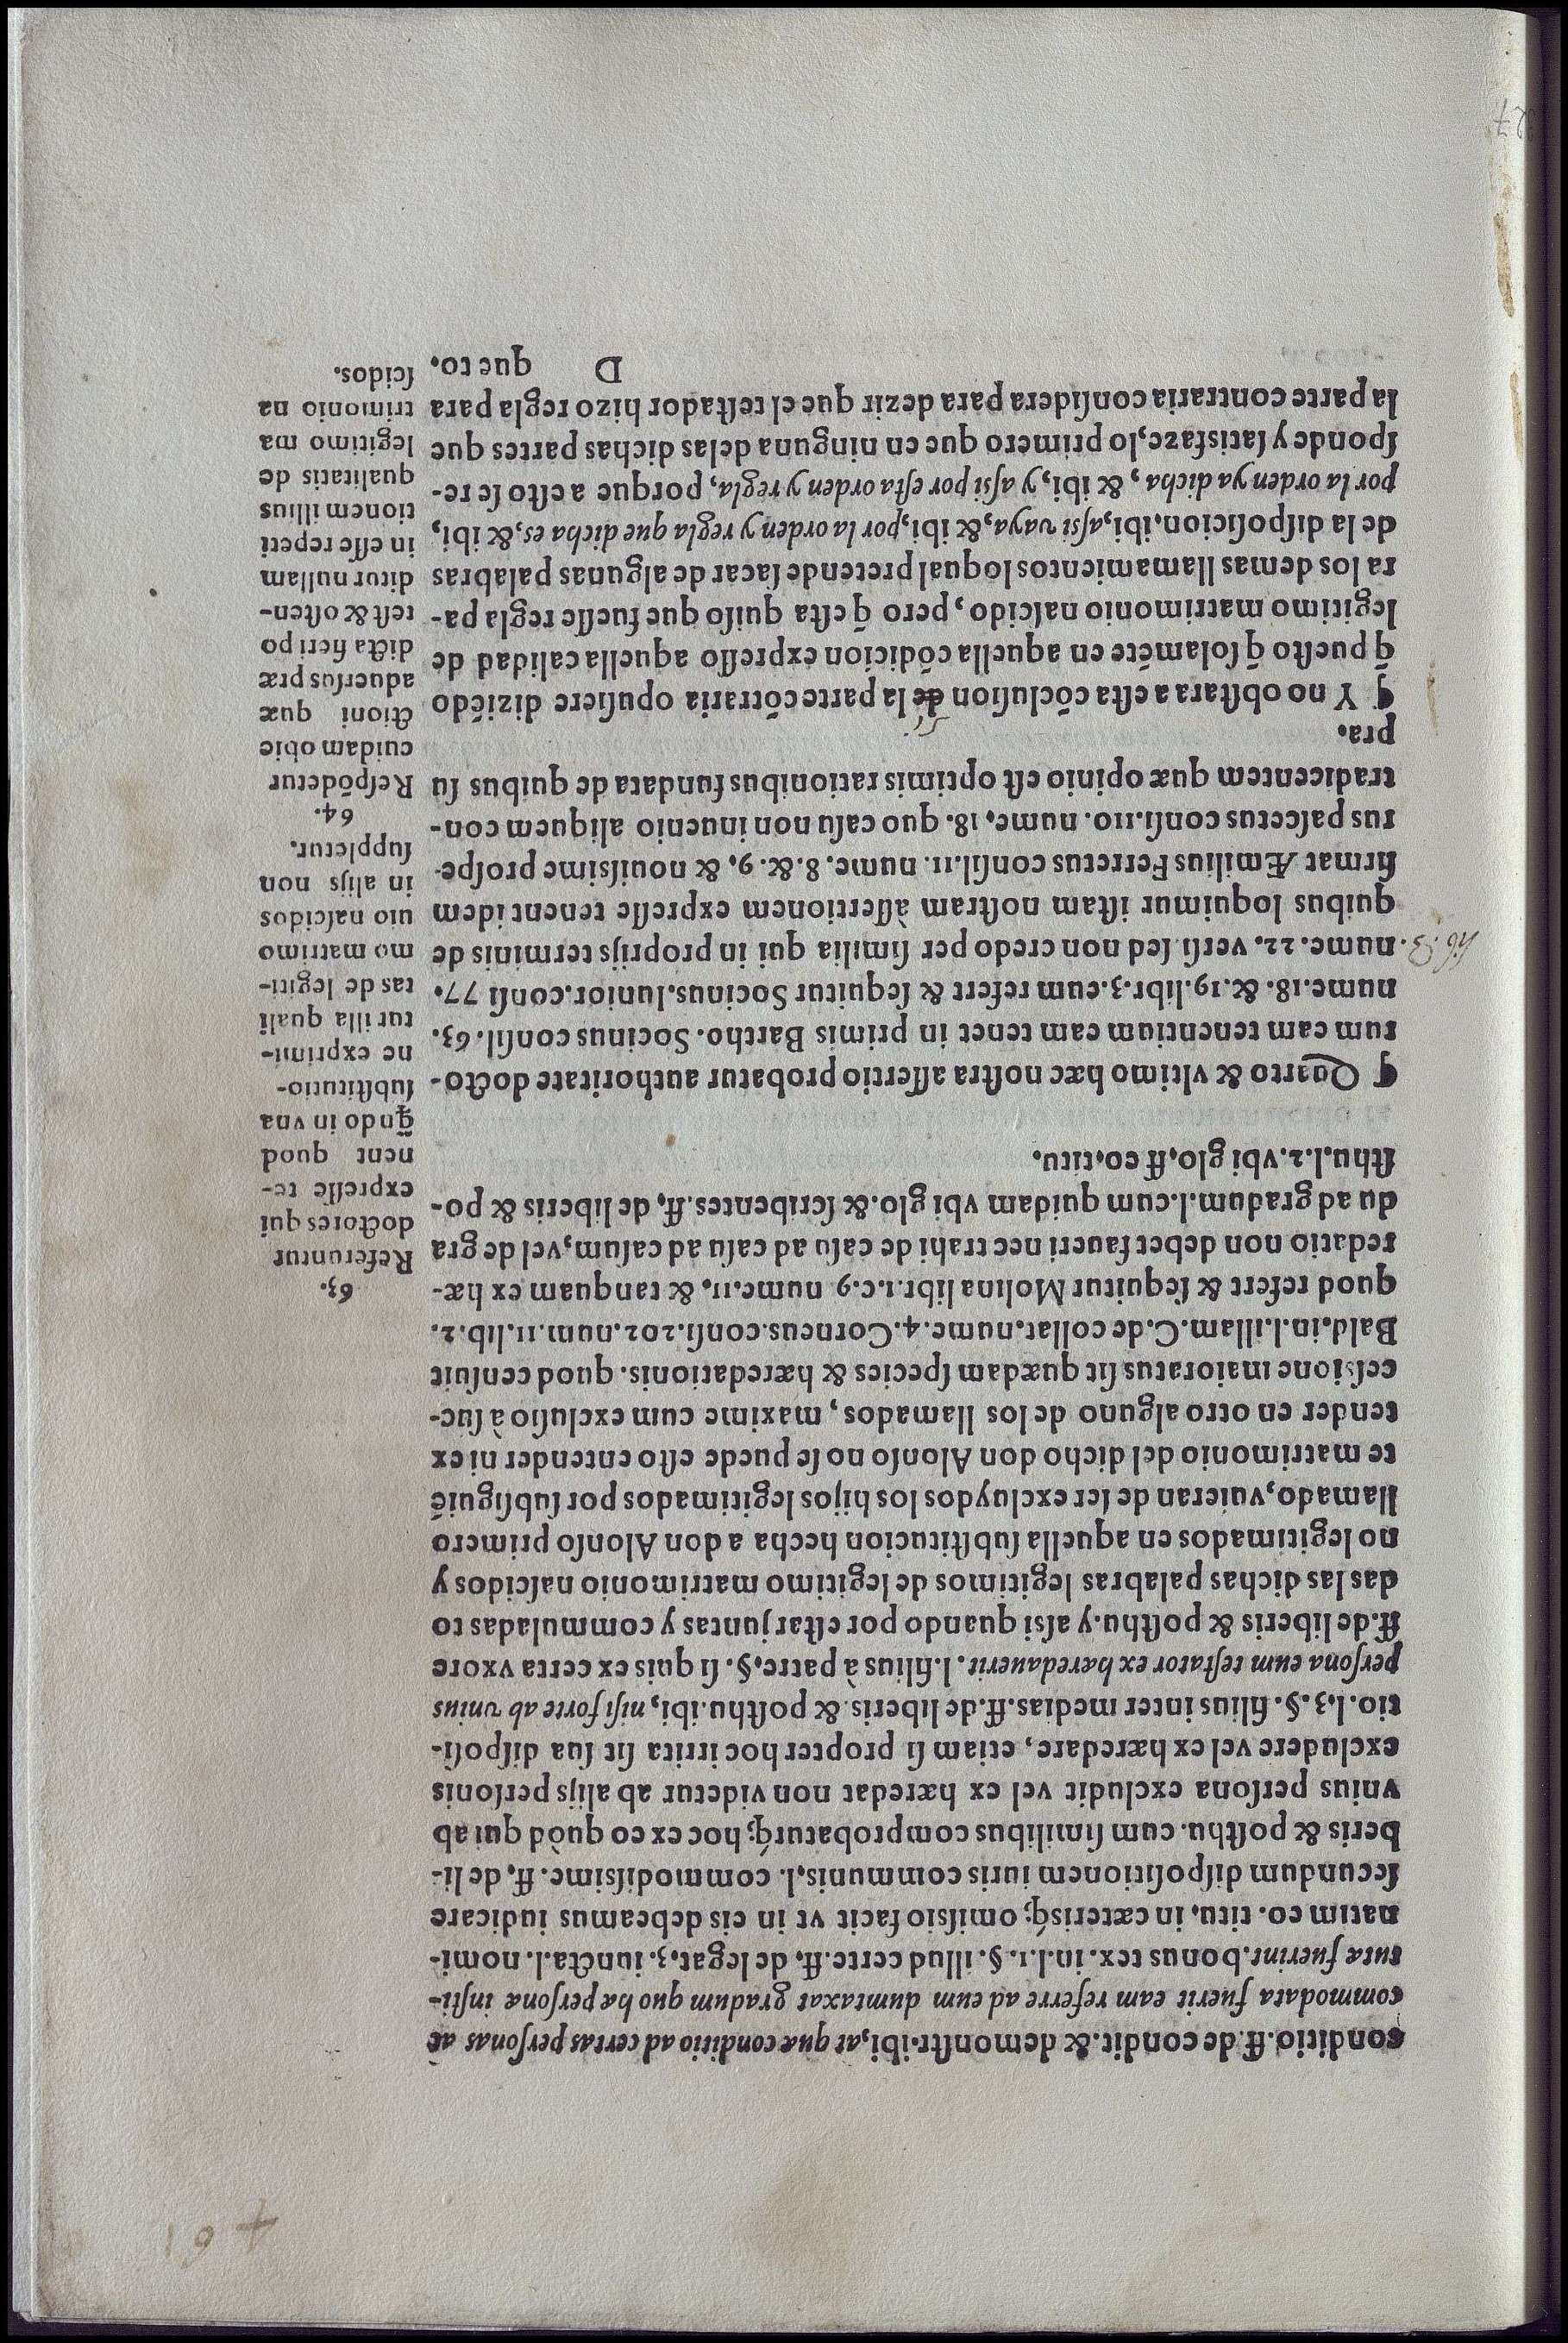 conditio.ff.de condit.& demonſtr.ibi,at quæ conditio ad certas perſonas ac
commodata fuerit eam referre ad eum dumtaxat gradum quo hæ perſonæ inſti-
tutæ fuerint.bonus tex.in.l.1.§.illud certe.ff.de legat.3.iuncta.l.nomi-
natim eo.titu.in cæteriſq; omiſsio facit vt in eis debeamus iudicare
ſecundum diſpoſitionem iuris communis,l.commodiſsime.ff.de li-
beris & poſthu.cum ſimilibus comprobaturq́; hoc ex eo quòd qui ab
vnius perſona excludit vel ex hæredat non videtur ab alijs perſonis
excludere vel ex hæredare, etiam ſi propter hoc irrita ſit ſua diſpoſi-
tio.l.3.§.filius inter medias.ff.de liberis & poſthu.ibi, niſi forte ab vnius
perſona eum teſtator ex hæredauerit.l.filius à patre.§.ſi quis ex certa vxore
ff.de liberis & poſthu.y aſsi quando por eſtar juntas y commuladas to
das las dichas palabras legitimos de legitimo matrimonio naſcidos y
no legitimados en aquella ſubſtitucion hecha a don Alonſo primero
llamado,vuieran de ſer excluydos los hijos legitimados por ſubſiguiē
te matrimonio del dicho don Alonſo no ſe puede eſto entender ni ex
tender en otro alguno de los llamados, maxime cum excluſio à ſuc-
ceſsione maioratus ſit quædam ſpecies & hæredationis. quod cenſuit
Bald.in.l.illam.C.de collat.nume.4.Corneus.conſi.202.num.11.lib.2.
quod refert & ſequitur Molina libr.1.c.9 nume.11. & tanquam ex hæ-
redatio non debet faueri nec trahi de caſu ad caſu ad caſum,vel de gra
du ad gradum.l.cum quidam vbi glo.& ſcribentes.ff.de liberis & po-
ſthu.l.2.vbi glo.ff eo.titu.
¶ Quarto & vltimo hæc noſtra aſſertio probatur authoritate docto-
rum eam tenentium eam tenet in primis Bartho. Socinus conſil.63.
nume.18.&.19.libr.3.eum refert & ſequitur Socinus.Iunior.conſi 77.
nume.22.verſi ſed non credo per ſimilia qui in proprijs terminis de
quibus loquimur iſtam noſtram àſſertionem expreſſe tenent idem
firmat Æmilius Ferretus conſil.11.nume.8.&.9.& nouiſsime proſpe-
rus paſcetus conſi.110.nume.18.quo caſu non inuenio aliquem con-
tradicentem quæ opinio eſt optimis rationibus fundata de quibus ſu
pra.
¶ Y no obſtara a eſta cōcluſion de la parte cōtraria opuſiere diziēdo
q̄ pueſto q̄ ſolamēte en aquella cōdicion expreſſo aquella calidad de
legitimo matrimonio naſcido, pero q̄ eſta quiſo que fueſſe regla pa-
ra los demas llamamientos lo qual pretende ſacar de algunas palabras
de la diſpoſicion.ibi,aſsi vaya,& ibi,por la orden y regla que dicha es,& ibi,
por la orden ya dicha, & ibi,y aſsi por eſta orden y regla, porque a eſto ſe re-
ſponde y ſatisfaze,lo primero que en ninguna delas dichas partes que
la parte contraria conſidera para dezir que el teſtador hizo regla para
D que to.
63.
Referuntur
doctores qui
expreſſe te-
nent quod
q̄ndo in vna
ſubſtitutio-
ne exprimi-
tur illa quali
tas de legiti-
mo matrimo
nio naſcidos
in alijs non
ſuppletur.
64.
Reſpōdetur
cuidam obie
ctioni quæ
aduerſus præ
dicta fieri po
teſt & oſten-
ditur nullam
in eſſe repeti
tionem illius
qualitatis de
legitimo ma
trimonio na
ſcidos.